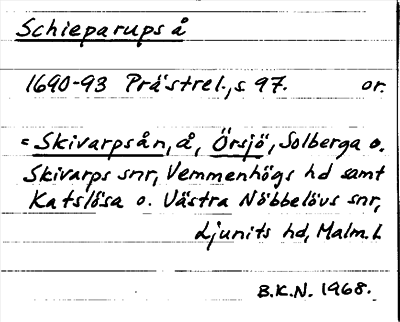 Schieparups å
1690-93 Prästrel., s. 97. or.
= Skivarpsån, å, Örsjö, Solberga o.
Skivarps snr, Vemmenhögs hd samt
Katslösa o. Västra Nöbbelövs snr,
Ljunits hd, Malm. L.
B.K.N. 1968.